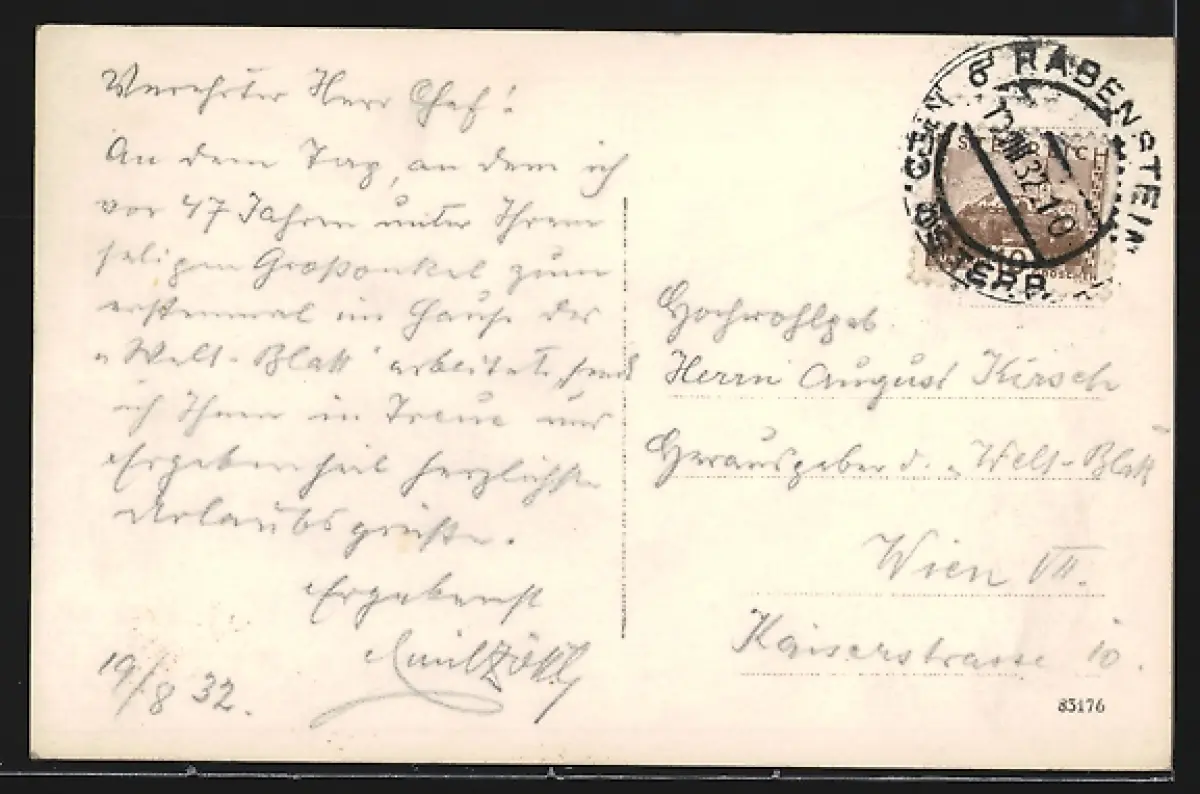 Verehrter Herr Chef!
An dem Tag, an dem ich
vor 47 Jahren unter Ihrem
seligen Großonkel zum
erstenmal im Hause des
„Welt-Blatt“ arbeitete, send
ich Ihnen in Treue und
Ergebenheit herzlichste
Urlaubsgrüße.
Ergebenst
Emil
19/8 32.
RABENSTEIN
ÖSTERR.
ÖSTERREICH
10
GROSCHEN
Hochwohlgeb.
Herrn August Kirsch
Herausgeber d. „Welt-Blatt“
Wien VII.
Kaiserstrasse 10.
83176